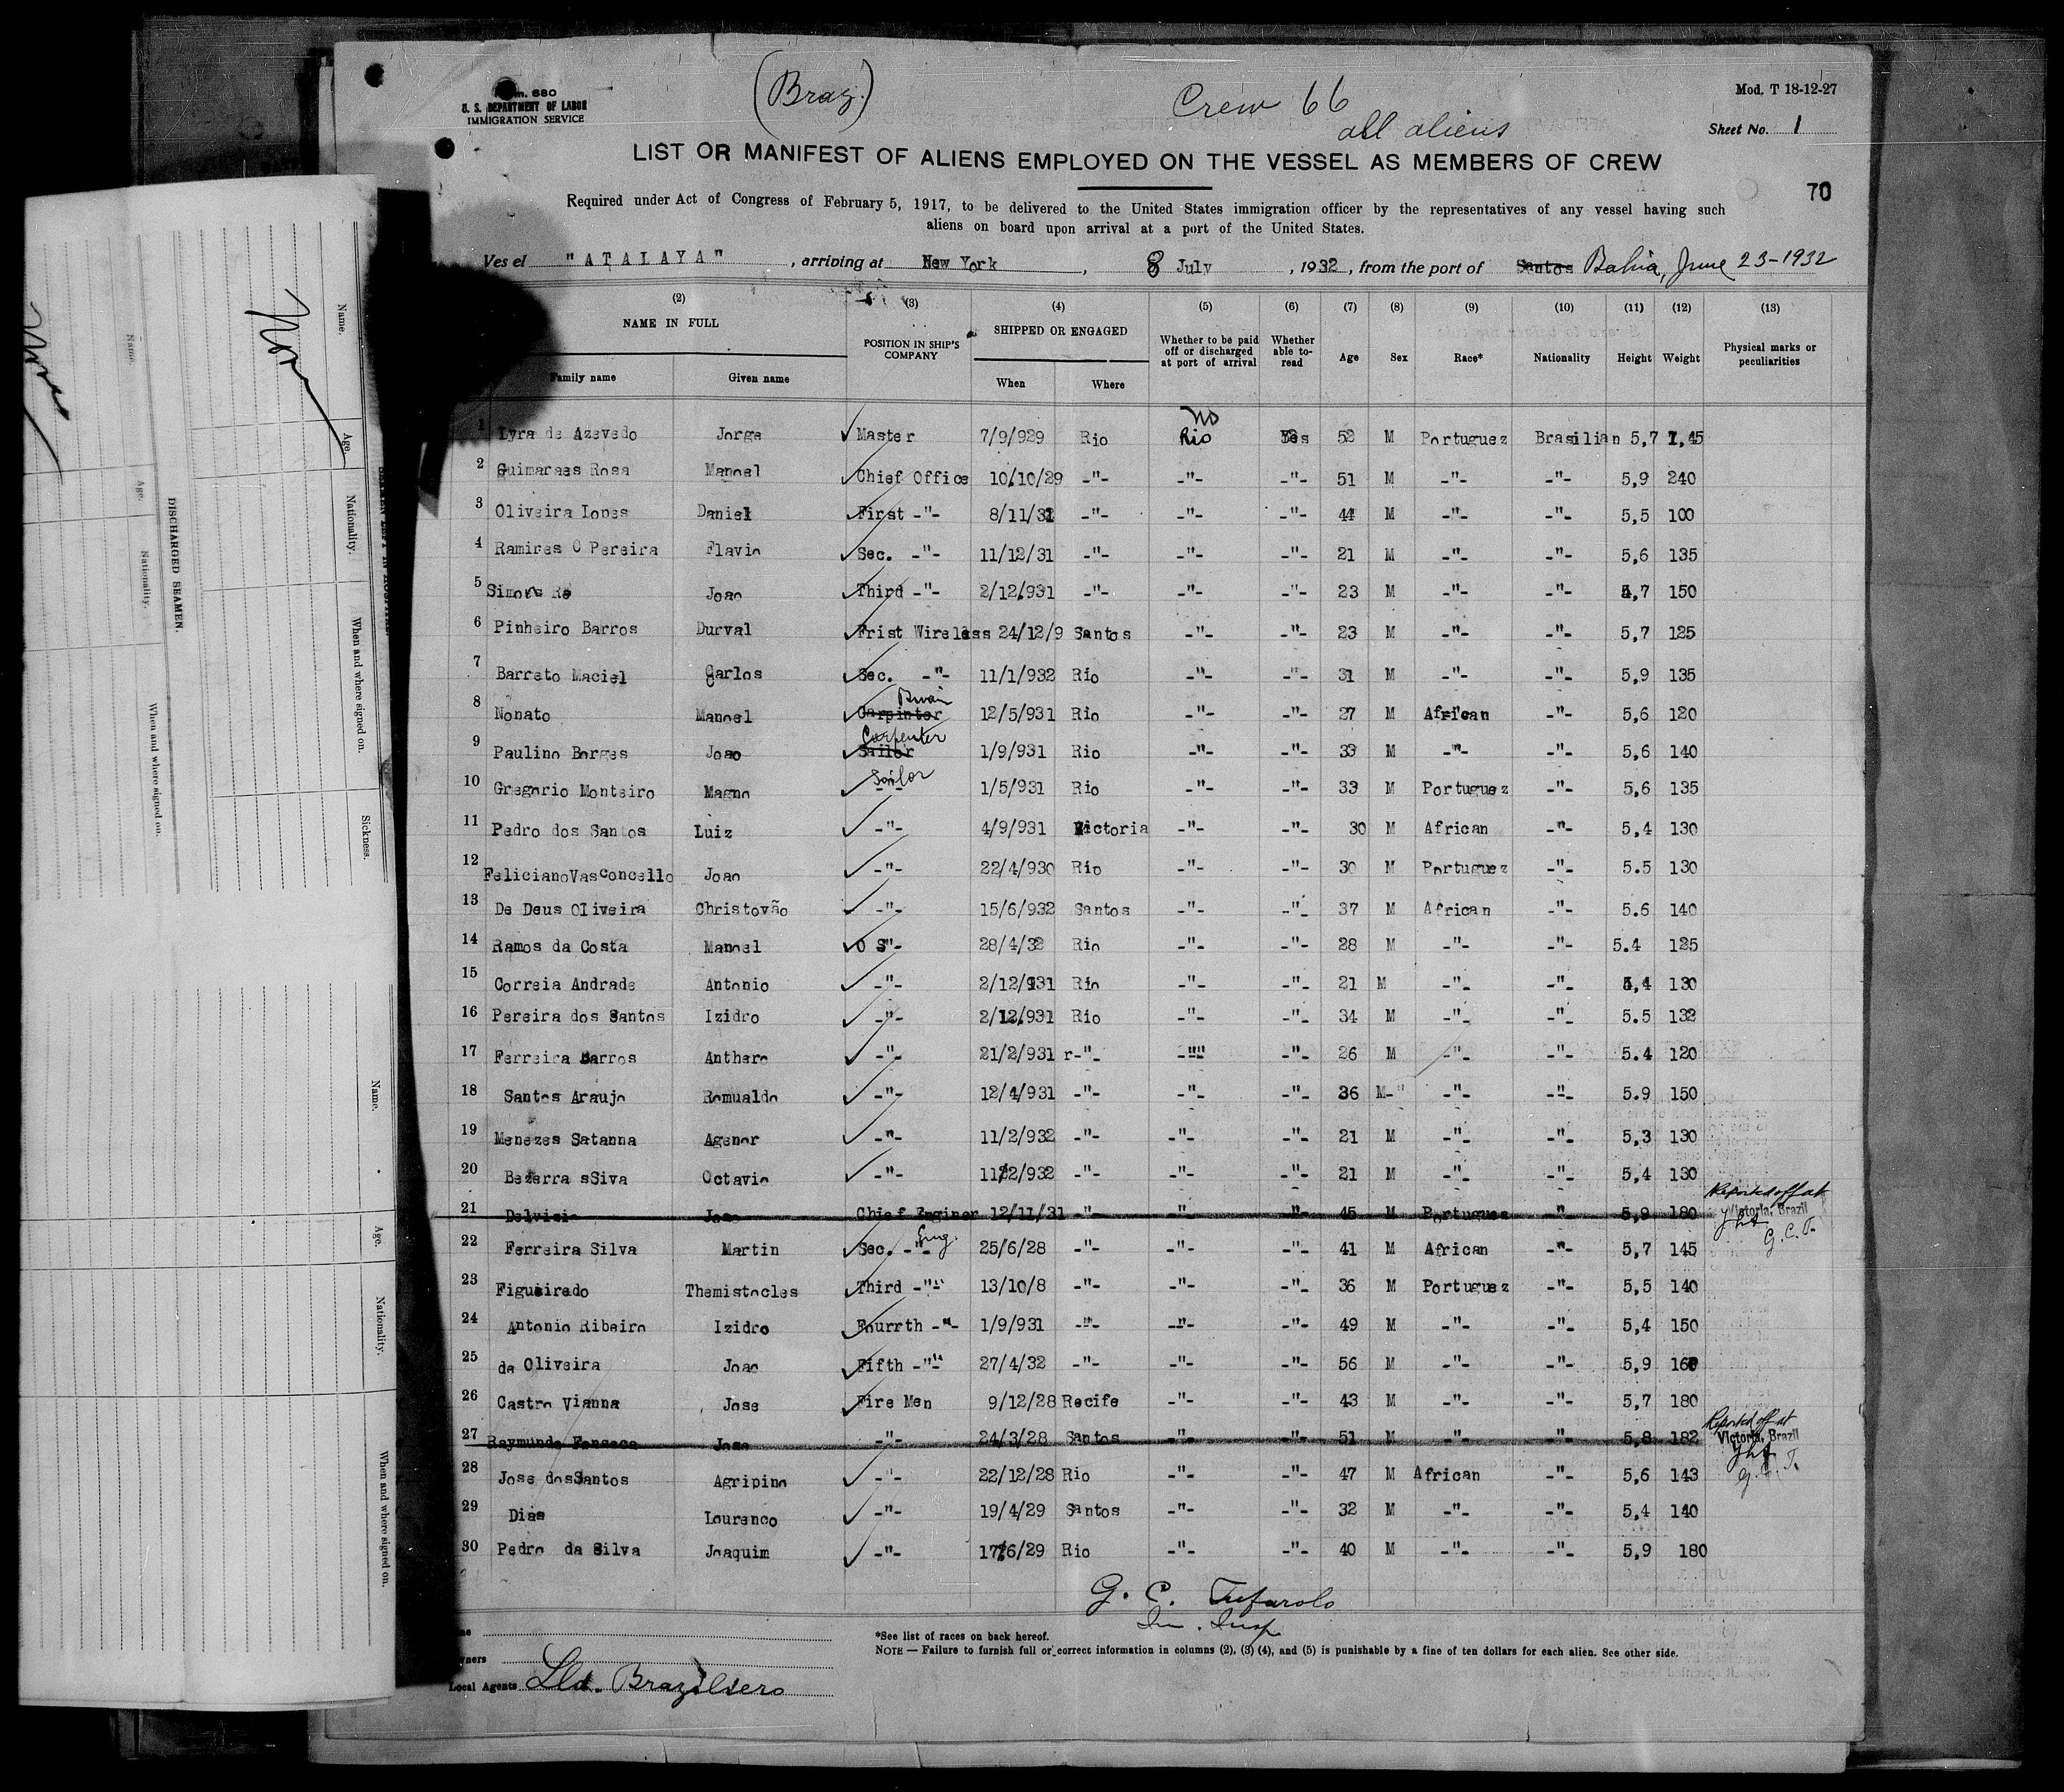 Form. 680
U. S. DEPARTMENT OF LABOR
IMMIGRATION SERVICE
(Braz.)
Crew 66
all aliens
Mod. T 18-12-27
Sheet No. 1
LIST OR MANIFEST OF ALIENS EMPLOYED ON THE VESSEL AS MEMBERS OF CREW
70
Required under Act of Congress of February 5, 1917, to be delivered to the United States immigration officer by the representatives of any vessel having such
aliens on board upon arrival at a port of the United States.
Ves el "ATALAYA", arriving at New York, 8 July, 1932, from the port of Santos Bahia, June 23-1932
(2) (3) (4) (5) (6) (7) (8) (9) (10) (11) (12) (13)
NAME IN FULL POSITION IN SHIP'S COMPANY SHIPPED OR ENGAGED Whether to be paid off or discharged at port of arrival Whether able to-read Age Sex Race* Nationality Height Weight Physical marks or peculiarities
Family name Given name When Where
No
1 Lyra de Azevedo Jorge Master 7/9/929 Rio Rio Yes 52 M Portuguez Brasilian 5,7 1,45
2 Guimaraes Rosa Manoel Chief Office 10/10/29 -"- -"- -"- 51 M -"- -"- 5,9 240
3 Oliveira Lopes Daniel First -"- 8/11/31 -"- -"- -"- 44 M -"- -"- 5,5 100
4 Ramires C Pereira Flavio Sec. -"- 11/12/31 -"- -"- -"- 21 M -"- -"- 5,6 135
5 Joao Third -"- 2/12.931 -"- -"- -"- 23 M -"- -"- 5,7 150
6 Pinheiro Barros Durval Frist Wireless 24/12/9 Santos -"- -"- 23 M -"- -"- 5,7 125
7 Barreto Maciel Carlos Sec. -"- 11/1/932 Rio -"- -"- 31 M -"- -"- 5,9 135
8 Nonato Manoel Carpinter Bwain 12/5/931 Rio -"- -"- 27 M African -"- 5,6 120
9 Paulino Borges Joao Sailor Carpenter 1/9/931 Rio -"- -"- 33 M -"- -"- 5,6 140
10 Gregorio Monteiro Magno -"- Sailor 1/5/931 Rio -"- -"- 33 M Portuguez -"- 5,6 135
11 Pedro dos Santos Luiz -"- 4/9/931 Victoria -"- -"- 30 M African -"- 5,4 130
12 FelicianoVasconcello Joao -"- 22/4/930 Rio -"- -"- 30 M Portuguez -"- 5.5 130
13 De Deus Oliveira Christovão -"- 15/6/932 Santos -"- -"- 37 M African -"- 5.6 140
14 Ramos da Costa Manoel O S"- 28/4/32 Rio -"- -"- 28 M -"- -"- 5.4 125
15 Correia Andrade Antonio -"- 2/12/931 Rio -"- -"- 21 M -"- -"- 5,4 130
16 Pereira dos Santos Izidro -"- 2/12.931 Rio -"- -"- 34 M -"- -"- 5.5 132
17 Ferreira Barros Anthero -"- 21/2/931 r-"- -""- -"- 26 M -"- -"- 5.4 120
18 Santos Araujo Romualdo -"- 12/4/931 -"- -"- -"- 36 M-" -"- -"- 5.9 150
19 Menezes Satanna Agenor -"- 11/2/932 -"- -"- -"- 21 M -"- -"- 5,3 130
20 Bezerra sSiva Octavio -"- 11/2/932 -"- -"- -"- 21 M -"- -"- 5,4 130
21 Delvisio Joao Chief Enginer 12/11/31 -"- -"- -"- 45 M Portuguez -"- 5,9 180 Reported off at Victoria, Brazil G.C.T.
22 Ferreira Silva Martin Sec. -"- Eng. 25/6/28 -"- -"- -"- 41 M African -"- 5,7 145
23 Figueiredo Themistocles Third -"- 13/10/8 -"- -"- -"- 36 M Portuguez -"- 5,5 140
24 Antonio Ribeiro Izidro Fourrth -"- 1/9/931 -"- -"- -"- 49 M -"- -"- 5,4 150
25 de Oliveira Joao Fifth -"- 27/4/32 -"- -"- -"- 56 M -"- -"- 5,9 160
26 Castro Vianna Jose Fire Men 9/12/28 Recife -"- -"- 43 M -"- -"- 5,7 180
27 Raymundo Fonseca Joao -"- 24/3/28 Santos -"- -"- 51 M -"- -"- 5,8 182 Reported off at Victoria, Brazil G.C.T.
28 Jose dosSantos Agripino -"- 22/12/28 Rio -"- -"- 47 M African -"- 5,6 143
29 Dias Lourenco -"- 19/4/29 Santos -"- -"- 32 M -"- -"- 5,4 140
30 Pedro da Silva Joaquim -"- 17/6/29 Rio -"- -"- 40 M -"- -"- 5,9 180
G. C. Tufarolo
Im. Insp
*See list of races on back hereof.
NOTE — Failure to furnish full or correct information in columns (2), (3) (4), and (5) is punishable by a fine of ten dollars for each alien. See other side.
Local Agents Lld. Brazileiro
Name. Age. Nationality. When and where signed on. Sickness.
None
DISCHARGED SEAMEN.
Name. Age. Nationality. When and where signed on.
None
Name. Age. Nationality. When and where signed on.